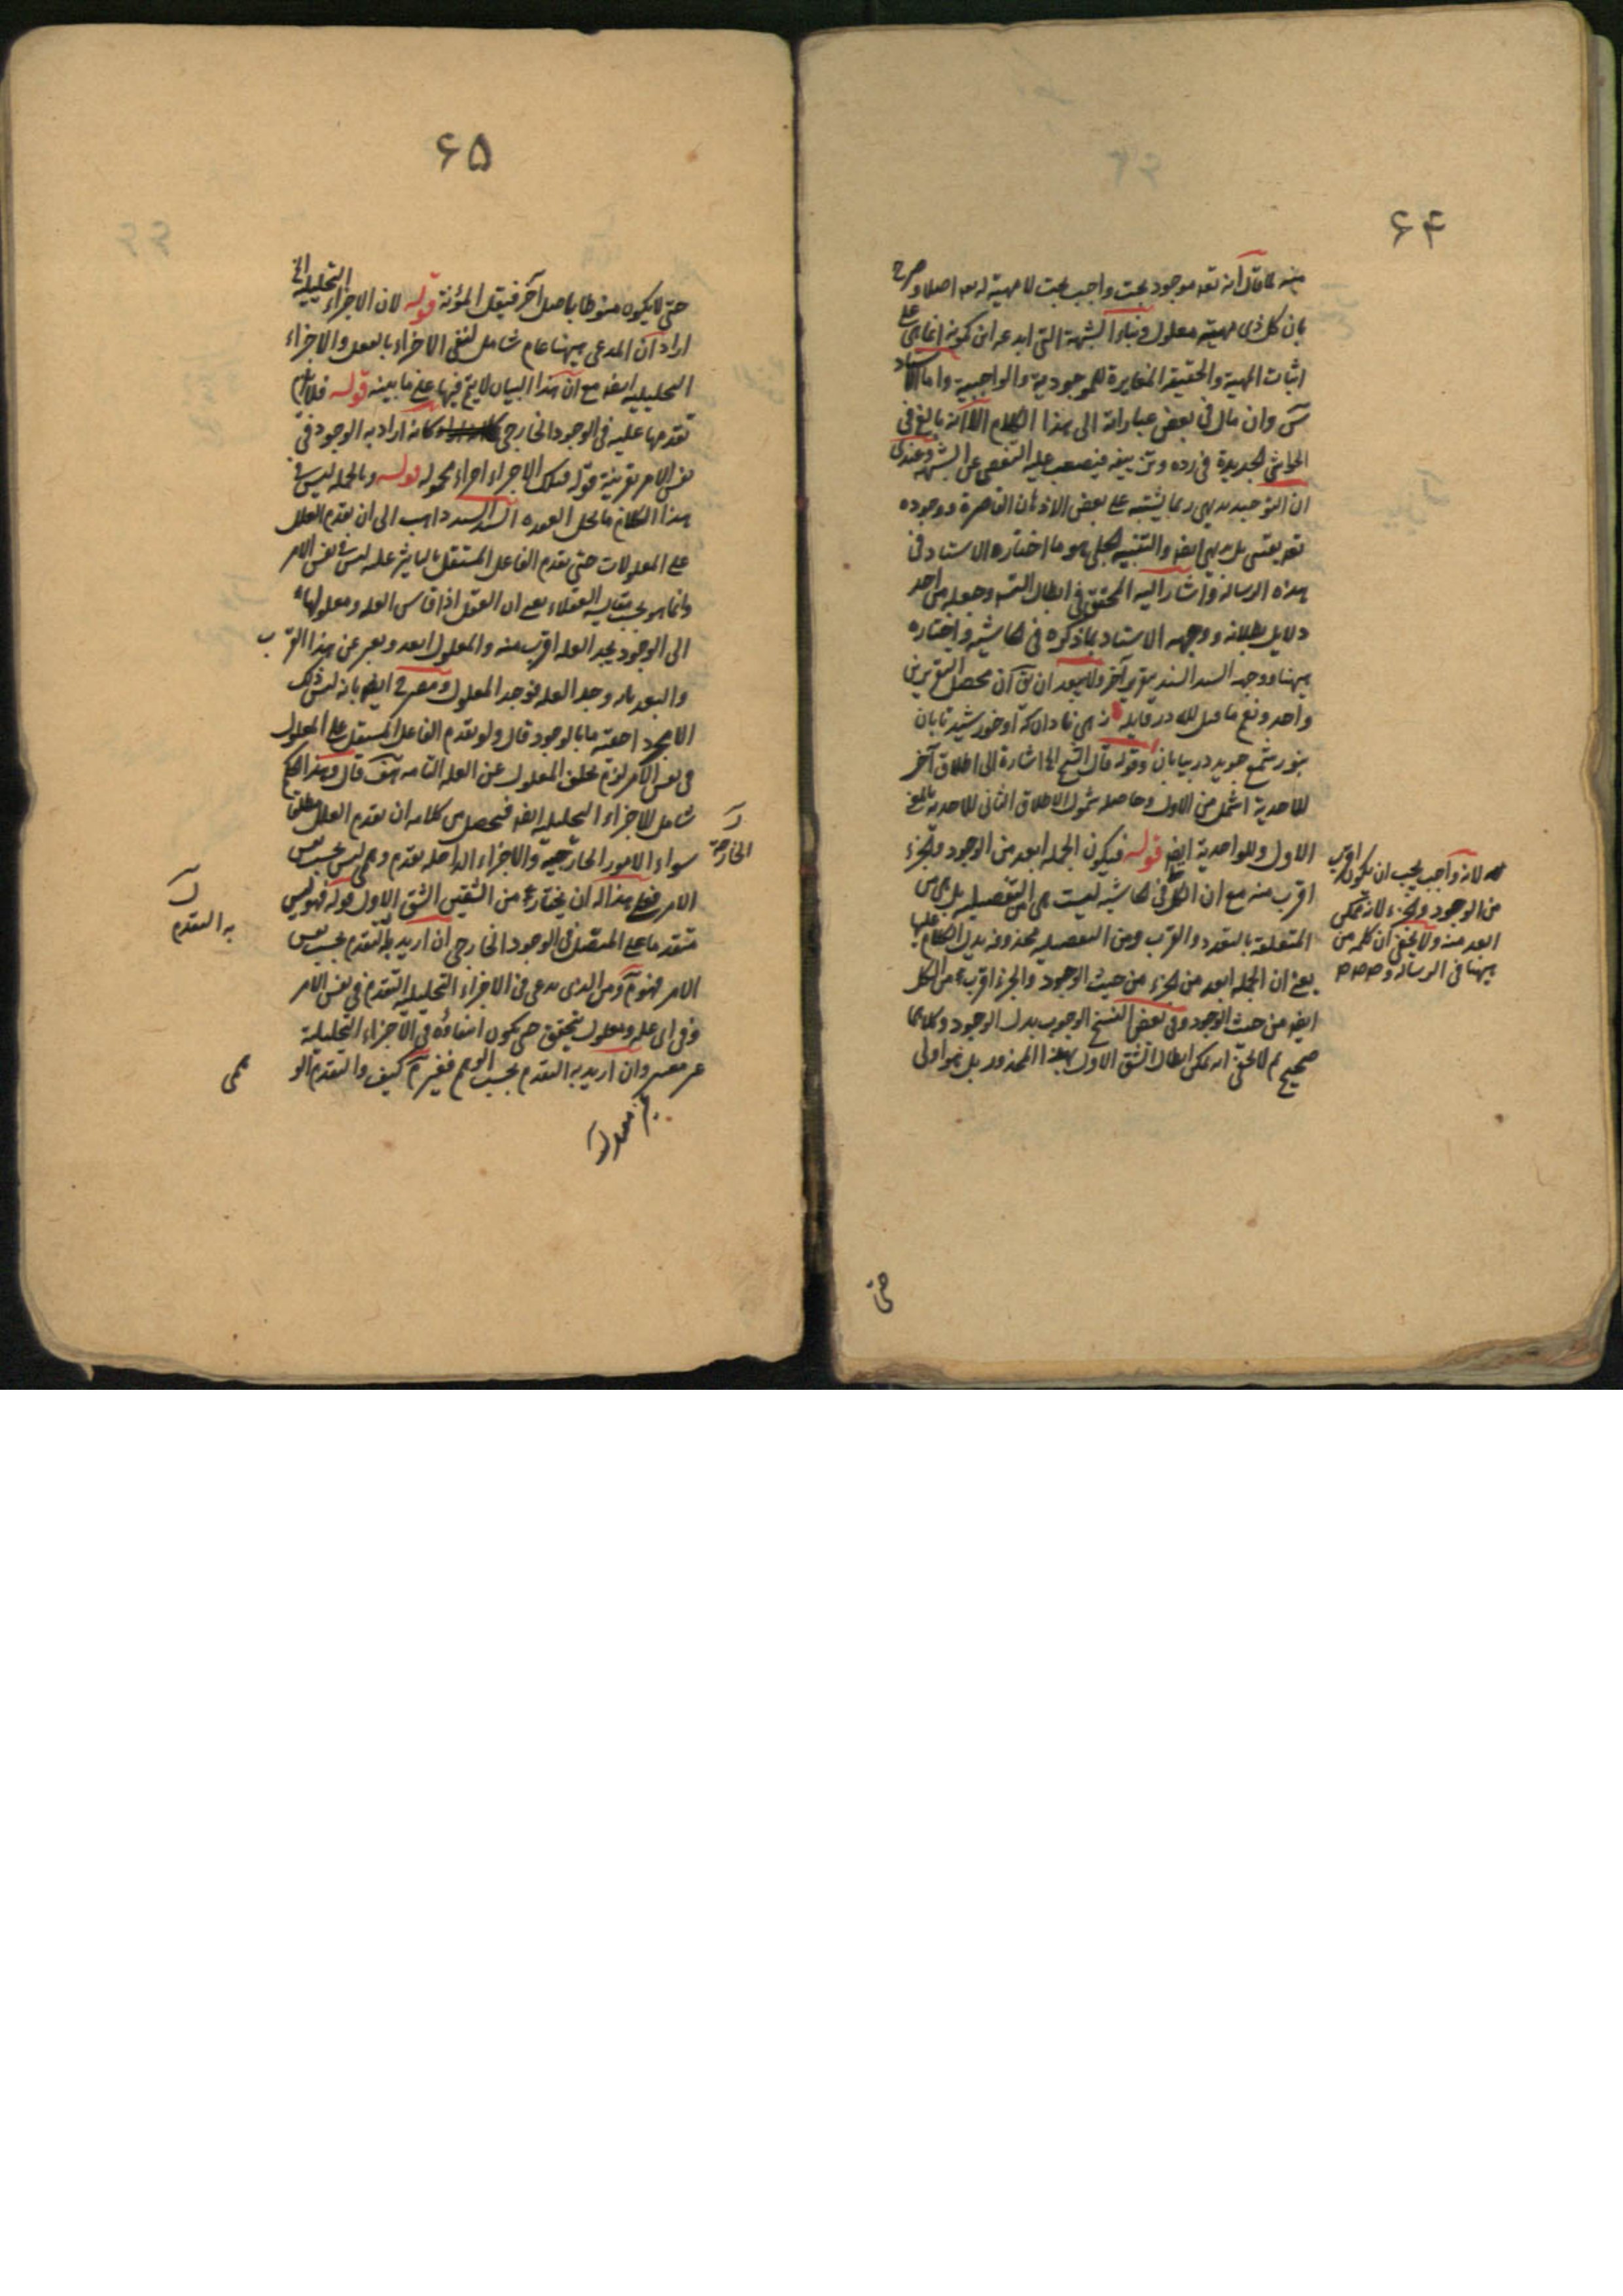 ۶۴
منه كما قال انه تعه موجود بحت واجب بحت لا مهية له تعه اصلا وصرح
بان كل ذى مهية معلول وبناء الشبهة التى ابدعه ابن كمونة انما هى على
اثبات المهية والحقيقة المغايرة للموجودية والواجبية واما الاستاد
وان مال فى بعض عباراته الى هذا الكلام الا انه بالغ فى
الحواشى الجديدة فى رده وتزييفه فيصعب عليه التفصى عن الشبهة وعندى
ان التوحيد بديهى ربما يشتبه على بعض الاذهان القاصرة ووجوده
تعه يقينى بل بديهى ايضا والتنبيه الجلى هو ما اختاره الاستاد فى
هذه الرسالة واشار اليه المحقق فى ابطال التسـ وجعله من احد
دلايل بطلانه ووجهه الاستاد بما ذكره فى حاشيته واختاره
ههنا ووجهه السيد السند بتقرير آخر ولا يبعد ان يق ان محصل التقريرين
واحد ونعم ما قيل لله در قايله زهى نادان كه او خورشيد تابان
بنور شمع جويد در بيابان وقوله قال الشيخ الخ اشارة الى اطلاق آخر
للاحدية اشمل من الاول وحاصله شمول الاطلاق الثانى للاحدية بالمعنى
الاول وللواحدية ايض قوله فيكون الجملة ابعد من الوجود والجزء
اقرب منه مع ان الكل فى حاشيه ليست هى من التفصيلية بل هى من
المتعلقة بالبعد والقرب ومن التفصيلية محذوفة يدل الكلام عليها
يعنى ان الجملة ابعد من الجزء من حيث الوجود والجزء اقرب من الكل
ايض من حيث الوجود وفى بعض النسخ الوجوب بدل الوجود وكلاهما
صحيح ثم لا يخفى انه يمكن ابطال الشق الاول بهذا المحذور بل هو اولى
لانه واجب يجب ان يكون اقرب
من الوجود والجزء لانه ممكن
ابعد منه ولا يخفى ان كلمة من
ههنا فى الرسالة و
حتى
۶۵
حتى لا يكون منوطا باصل آخر فيقل المؤنة قوله لان الاجزاء التحليلية الخ
اراد ان المدعى ههنا عام شامل لنفى الاجزاء بالفعل والاجزاء
التحليلية ايض مع ان هذا البيان لا يتم فيها على ما بينه قوله فلان
تقدمها عليه فى الوجود الخارجى كانه اراد به الوجود فى
نفس الامر بقرينة قوله فتلك الاجزاء اجزاء محمولة قوله وبالجملة ليس فى
هذا الكلام ما يحل العقدة السيد السند ذاهب الى ان تقدم العلل
على المعلولات حتى تقدم الفاعل المستقل بالتاثير عليه ليس فى نفس الامر
وانما هو بحسب مقايسة العقلاء يعنى ان العقل اذا قاس العلة ومعلولها
الى الوجود يجد العلة اقرب منه والمعلول ابعد ويعبر عن هذا القرب
والبعد بانه وجد العلة فوجد المعلول وصرح ايض بانه ليس ذلك
الا مجرد احقية ما بالوجود قال ولو تقدم الفاعل المستقل على المعلول
فى نفس الامر لزم تخلف المعلول عن العلة التامة هف قال وهذا الحكم
شامل للاجزاء التحليلية ايض فيحصل من كلامه ان تقدم العلل مطلقا
سواء الامور الخارجية والاجزاء الداخلة تقدم وهمى ليس بحسب نفس
الامر فعلى هذا له ان يختار من الشقين الشق الاول قوله فهو ليس
متقدما على المتصل فى الوجود الخارجى ان اريد به التقدم بحسب نفس
الامر فهو م ومن الذى يدعى فى الاجزاء التحليلية التقدم فى نفس الامر
وفى اى علة ومعلول يتحقق حتى يكون انتفاؤه فى الاجزاء التحليلية
غير مضر وان اريد به التقدم بحسب الوهم فغير م كيف والتقدم الو
الخارجة
به التقدم
همى